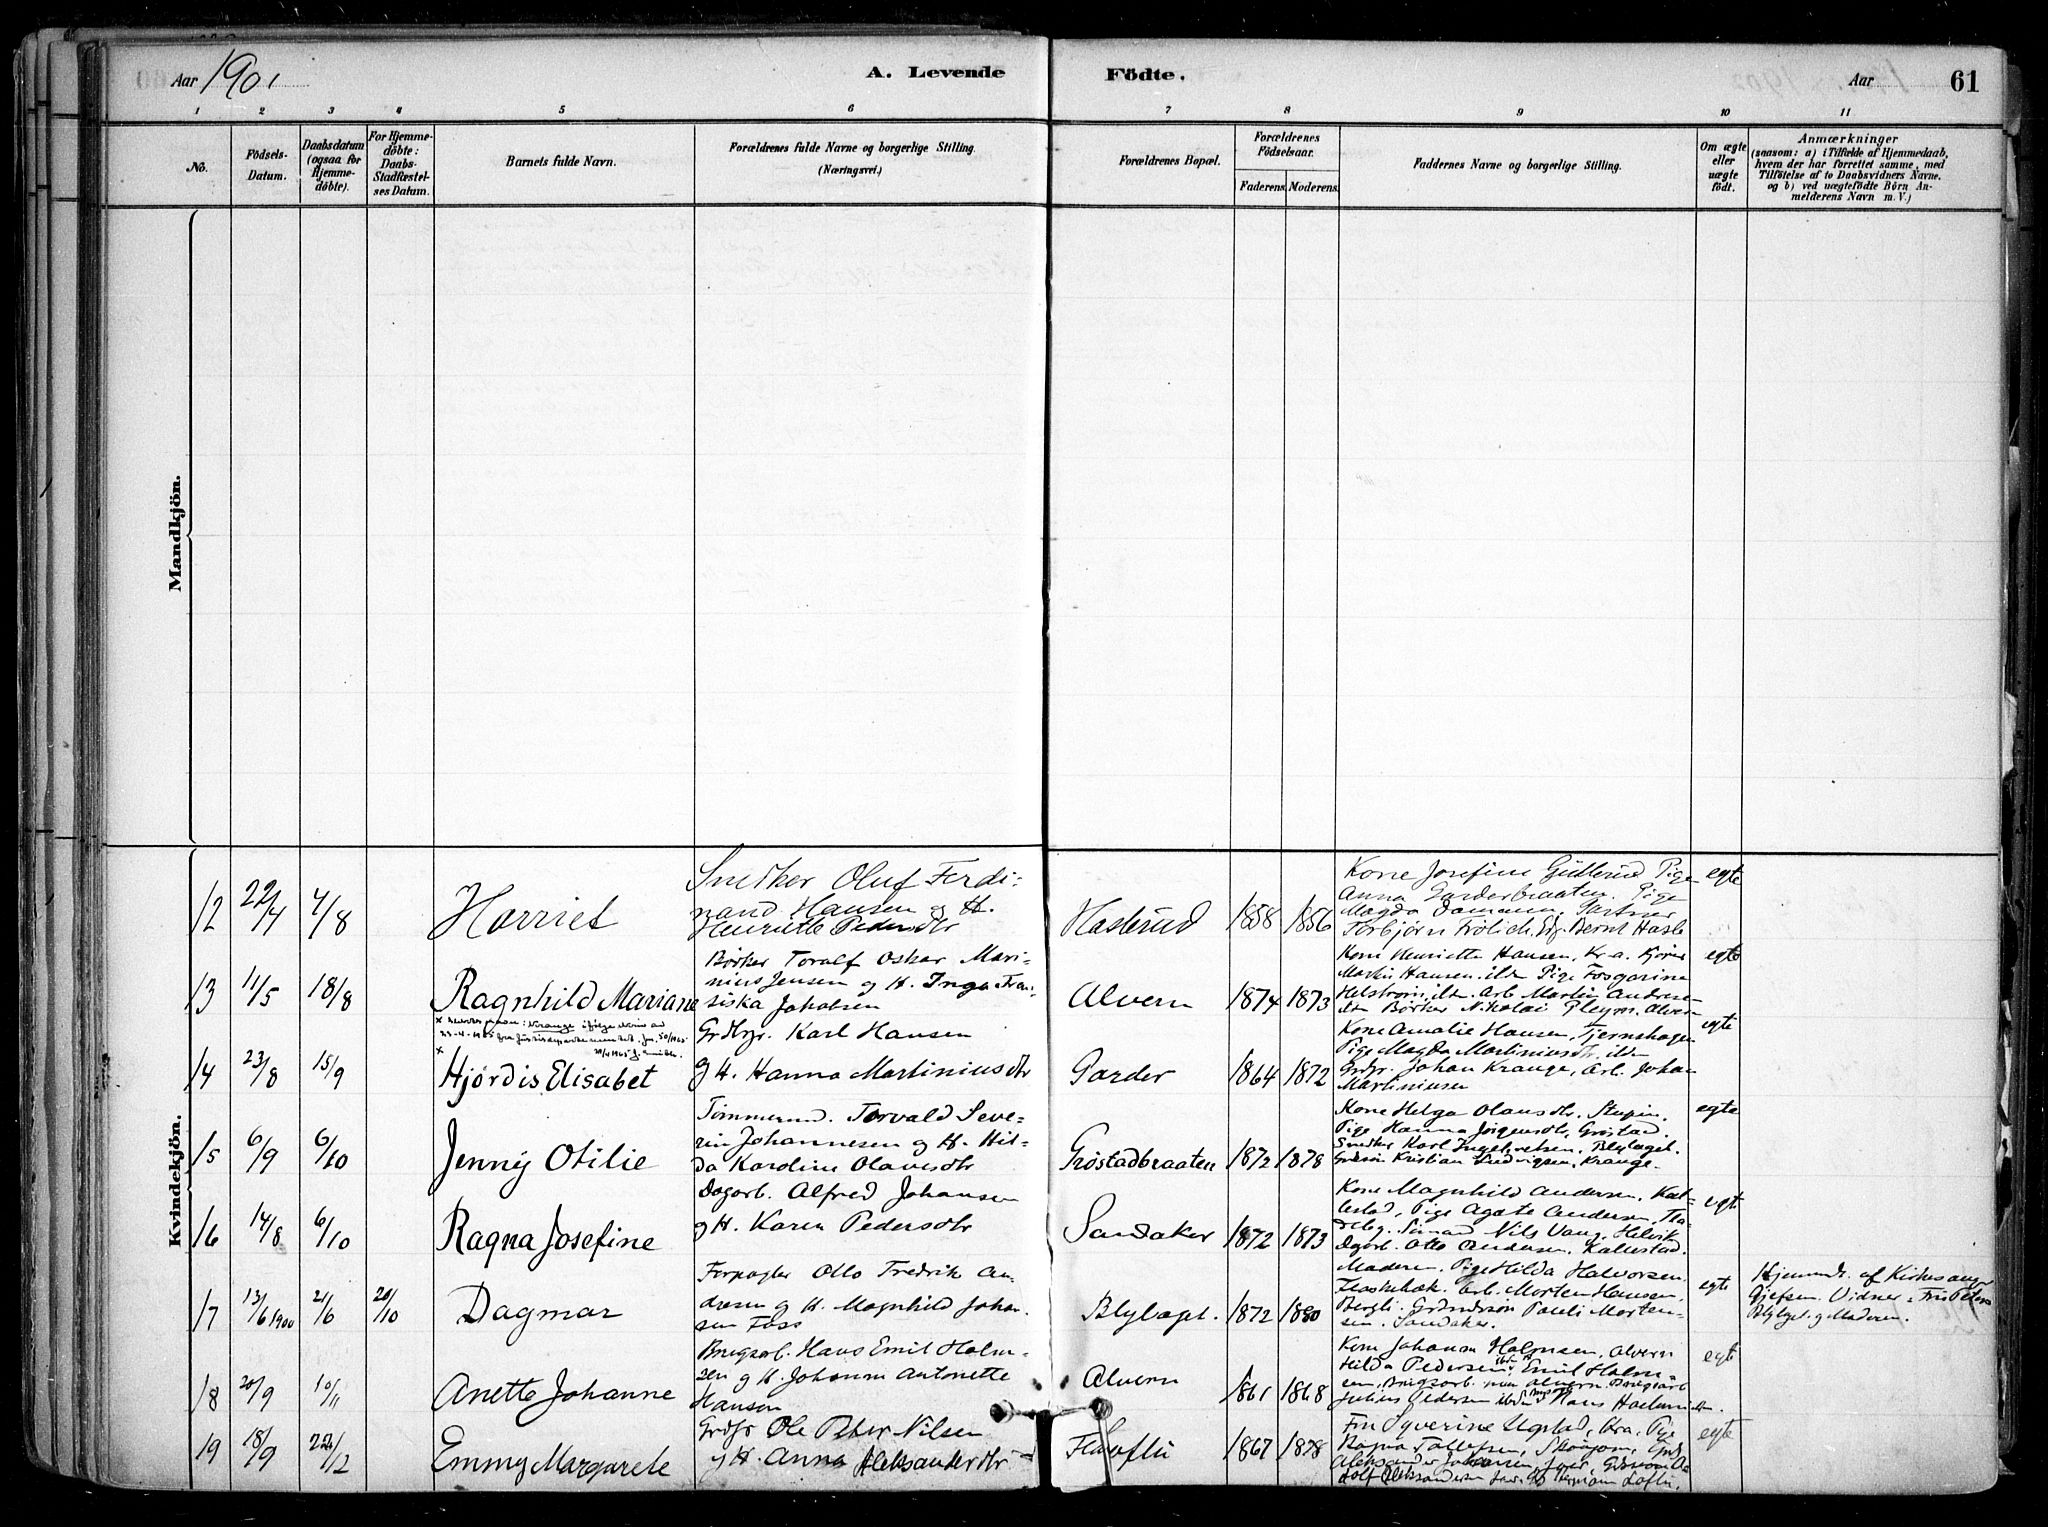 Aar 1901
A. Levende Födte.
Aar
61
1 2 3 4 5 6 7 8 9 10 11
No.
Födsels-Datum.
Daabsdatum (ogsaa for Hjemmedöbte).
For Hjemmedöbte: Daabs-Stadfæstelses Datum.
Barnets fulde Navn.
Forældrenes fulde Navne og borgerlige Stilling.
(Næringsvei.)
Forældrenes Bopæl.
Forældrenes Födselsaar.
Faderens. Moderens.
Faddernes Navne og borgerlige Stilling.
Om ægte eller uægte födt.
Anmærkninger
(saasom: a) i Tilfælde af Hjemmedaab,
hvem der har forrettet samme, med
Tilföielse af to Daabsvidners Navne.
og b) ved uægtefödte Börn An-
melderens Navn m. V.)
Mandkjön.
Kvindekjön.
12 22/4 4/8 Harriet
Snedker Oluf Ferdi-
nand Hansen og H.
Henriette Pedersdtr
Hasterud 1858 1856
Kone Josefine Gullerud Pige
Anna Garderbraaten. Pige
Magda Damann. Gartner
Torbjørn Frölich. Bernt Hasle
egte
13 11/5 18/8 Ragnhild Mariane
Børker Toralf Oskar Mari-
nius Jensen og H. Inga Fran-
siska Jakobsen
Alvern 1874 1873
Kone Henriette Hansen, Kr.a. Kjører
Martin Hansen. ildn Pige Fosgarine
Helstrøm, ildn. Arb. Martin Andrese
ildn Børker Nikolai Pleym. Alvern
egte
14 23/8 15/9 Hjördis Elisabet
Grdbr. Karl Hansen
g H. Hanna Martiniusdtr
Garder 1864 1872
Kone Amalie Hansen, Tjernshagen
Pige Magda Martiniusdtr, ildn
Grdbr. Johan Krange, Arb. Johan
Martiniusen
egte
15 6/9 6/10 Jenny Otilie
Tömmermd. Torvald Seve-
rin Johannesen og H. Hil-
da Karoline Olavesdtr
Gröstadbraaten 1872 1878
Kone Helga Olausdtr.
Pige Hanna Jörgensdtr, Gröstad
Snedker Karl Ingelvetsen, Blylaget.
Kristian Ludvigsen, Krange.
egte
16 14/8 6/10 Ragna Josefine
Dagarb. Alfred Johansen
og H. Karen Pedersdtr
Sandaker 1872 1873
Kone Magnhild Andersen, Kal-
lestad, Pige Agate Andersen,
Sömand Nils Vang, Helvik
Dagarb. Otto Andersen, Kallestad.
egte
17 13/6 1900 21/6 20/10 Dagmar
Forpagter Otto Fredrik An-
dresen og H. Magnhild Johan-
sen Foss
Blylaget. 1872 1880
Moderen. Pige Hilda Halvorsen,
Flaskebæk. Arb. Morten Hansen,
Bergli. Grdmdssön Pauli Morten-
sen. Sandaker.
egte
Hjemmdr. af Kirkesanger
Gjefsen. Vidner:
Blylget. og Moderen.
18 20/9 10/11 Anette Johanne
Brugsarb. Hans Emil Holm-
sen g H. Johanne Antonette
Hansen
Alvern 1861 1868
Kone Johanne Holmsen, Alvern
Hilda Pedersen, Emil Holm-
sen, Brugsarb. Alvern. Brugsarb
Julius Pedersen
egte
19 18/9 22/12 Emmy Margarete
Grdbr Ole Peter Nilsen
g H. Anna Aleksanderdtr
1867 1878
Fru Syverine Ugstad, Kra, Pige
Ragna Tollefsen,
Aleksander Johansen,
Aleksandersen
egte